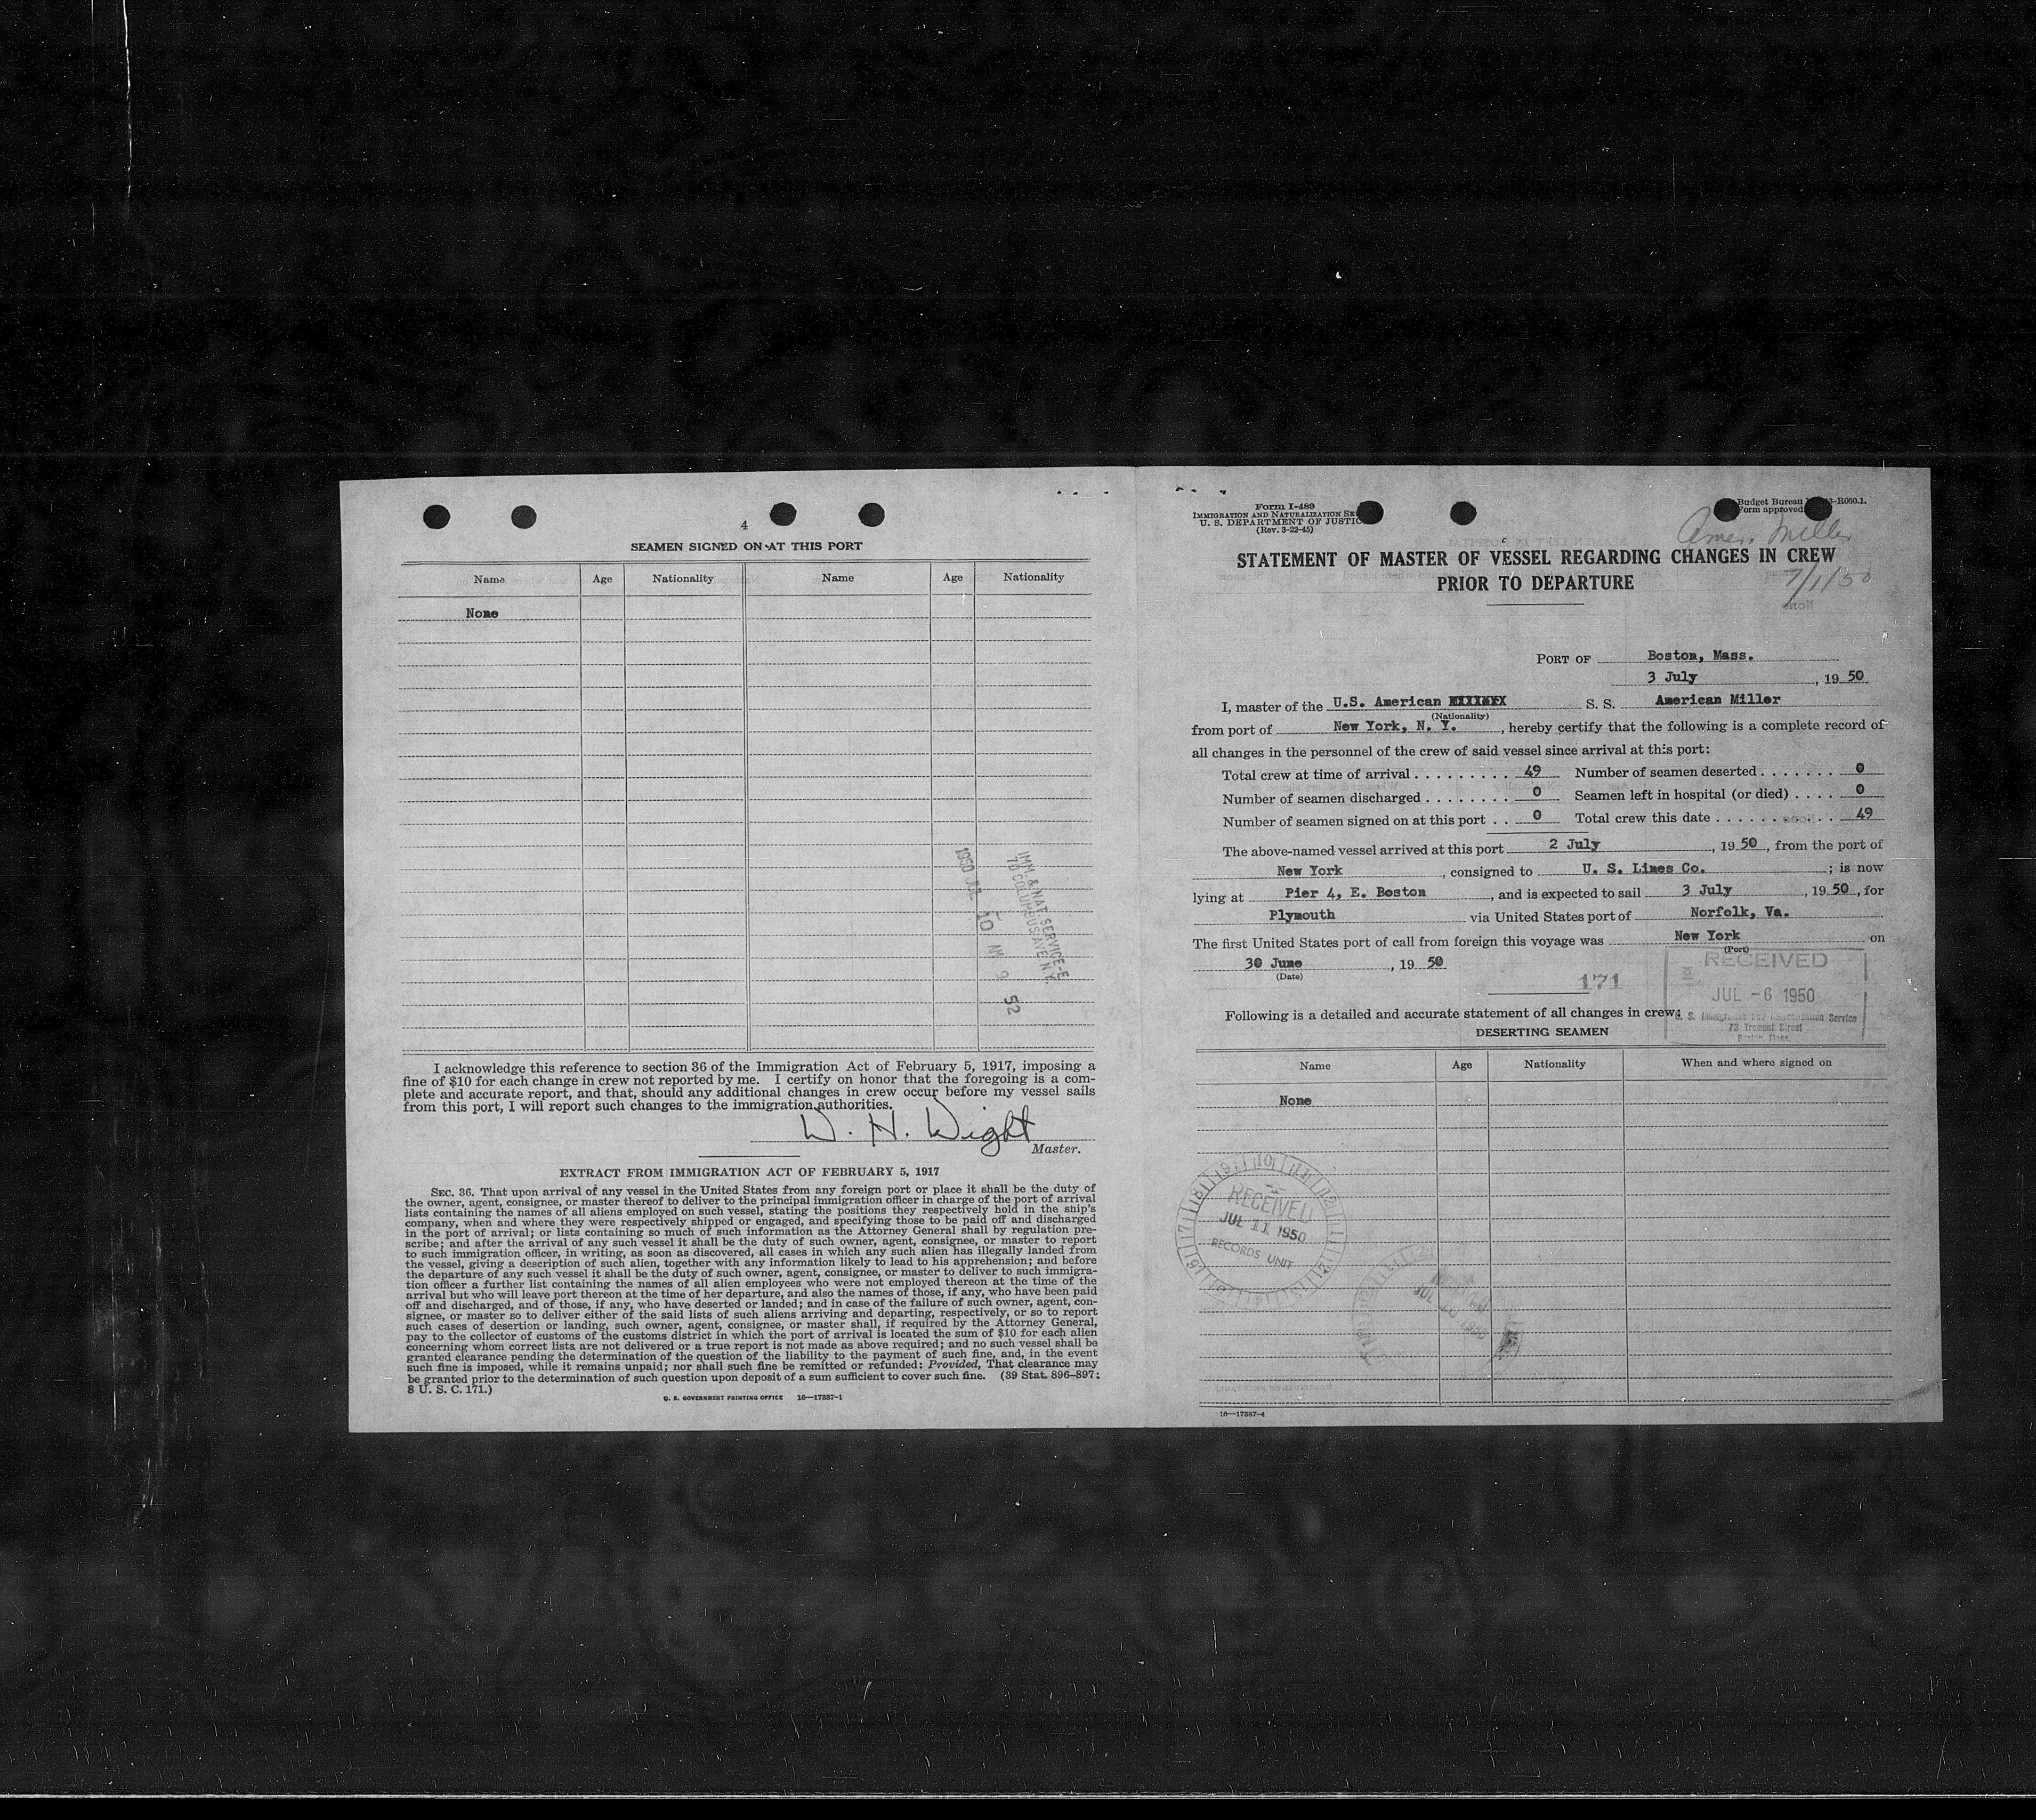 4
SEAMEN SIGNED ON AT THIS PORT
Name Age Nationality Name Age Nationality
None
1950 JUL 10 AM 9 52
IMM. & NAT. SERVICE-E
70 COLUMBUS AVE N.Y.
I acknowledge this reference to section 36 of the Immigration Act of February 5, 1917, imposing a
fine of $10 for each change in crew not reported by me. I certify on honor that the foregoing is a com-
plete and accurate report, and that, should any additional changes in crew occur before my vessel sails
from this port, I will report such changes to the immigration authorities.
W. H. Wight
Master.
EXTRACT FROM IMMIGRATION ACT OF FEBRUARY 5, 1917
SEC. 36. That upon arrival of any vessel in the United States from any foreign port or place it shall be the duty of
the owner, agent, consignee, or master thereof to deliver to the principal immigration officer in charge of the port of arrival
lists containing the names of all aliens employed on such vessel, stating the positions they respectively hold in the ship's
company, when and where they were respectively shipped or engaged, and specifying those to be paid off and discharged
in the port of arrival; or lists containing so much of such information as the Attorney General shall by regulation pre-
scribe; and after the arrival of any such vessel it shall be the duty of such owner, agent, consignee, or master to report
to such immigration officer, in writing, as soon as discovered, all cases in which any such alien has illegally landed from
the vessel, giving a description of such alien, together with any information likely to lead to his apprehension; and before
the departure of any such vessel it shall be the duty of such owner, agent, consignee, or master to deliver to such immigra-
tion officer a further list containing the names of all alien employees who were not employed thereon at the time of the
arrival but who will leave port thereon at the time of her departure, and also the names of those, if any, who have been paid
off and discharged, and of those, if any, who have deserted or landed; and in case of the failure of such owner, agent, con-
signee, or master so to deliver either of the said lists of such aliens arriving and departing, respectively, or so to report
such cases of desertion or landing, such owner, agent, consignee, or master shall, if required by the Attorney General,
pay to the collector of customs of the customs district in which the port of arrival is located the sum of $10 for each alien
concerning whom correct lists are not delivered or a true report is not made as above required; and no such vessel shall be
granted clearance pending the determination of the question of the liability to the payment of such fine, and, in the event
such fine is imposed, while it remains unpaid; nor shall such fine be remitted or refunded: Provided, That clearance may
be granted prior to the determination of such question upon deposit of a sum sufficient to cover such fine. (39 Stat. 896–897;
8 U. S. C. 171.)
U. S. GOVERNMENT PRINTING OFFICE 16—17387-1
Form I-489
IMMIGRATION AND NATURALIZATION
U. S. DEPARTMENT OF JUSTICE
(Rev. 3-22-45)
Budget Bureau R060.1.
Form approved
Amer. Miller
7/1/50
STATEMENT OF MASTER OF VESSEL REGARDING CHANGES IN CREW
PRIOR TO DEPARTURE
PORT OF Boston, Mass.
3 July, 19 50
I, master of the U.S. American S. S. American Miller
(Nationality)
from port of New York, N. Y., hereby certify that the following is a complete record of
all changes in the personnel of the crew of said vessel since arrival at this port:
Total crew at time of arrival 49 Number of seamen deserted 0
Number of seamen discharged 0 Seamen left in hospital (or died) 0
Number of seamen signed on at this port 0 Total crew this date 49
The above-named vessel arrived at this port 2 July, 19 50, from the port of
New York, consigned to U. S. Lines Co.; is now
lying at Pier 4, E. Boston, and is expected to sail 3 July, 19 50, for
Plymouth via United States port of Norfolk, Va.
The first United States port of call from foreign this voyage was New York on
(Port)
30 June, 19 50
(Date)
171
RECEIVED
JUL -6 1950
U. S. Immigration and Naturalization Service
73 Tremont Street
Boston Mass.
Following is a detailed and accurate statement of all changes in crew:
DESERTING SEAMEN
Name Age Nationality When and where signed on
None
RECEIVED
JUL 11 1950
RECORDS UNIT
16—17387-4